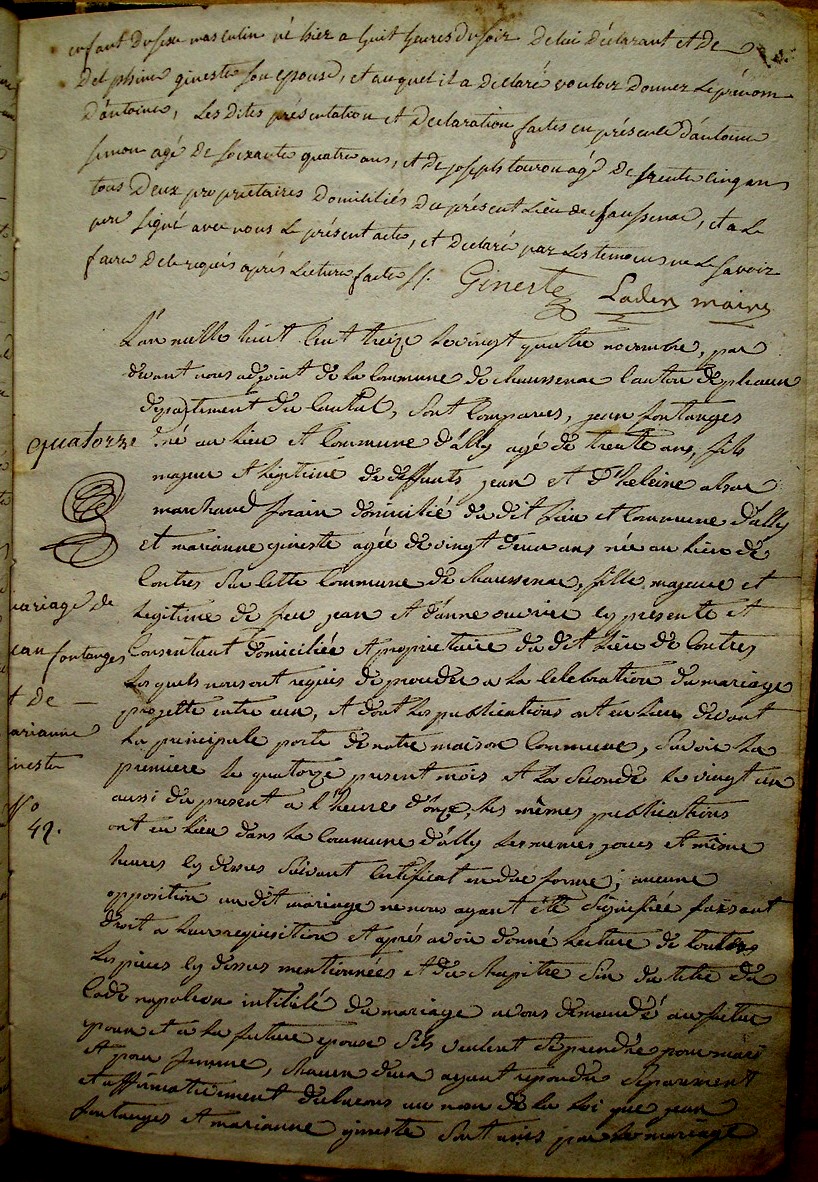 enfant du sexe masculin né hier a huit heures du soir de lui déclarant et de
Delphine gineste son epouse, et auquel il a declaré vouloir donner le prénom
D'antoine, Les dites présentation et Declaration faites en présence d'antoine
simon agé de soixante quatre ans, et de joseph tourou agé de trente cinq ans
tous Deux propriétaires Domiciliés du présent Lieu de chaussenac, et a le
pere signé avec nous le présent acte, et déclaré par les temoins ne le savoir
faire De ce requis aprés lecture faite //. Gineste Laden maire
L'an mille huit cent treize le vingt quatre novembre, par
devant nous adjoint de la Commune de chaussenac canton de pleaux
departement du Cantal, sont comparus, jean fontanges
quatorze né au lieu et Commune d'ally agé de trente ans, fils
majeur et legitime de deffunts jean et d'heleine
marchand forain domicilié du dit lieu et Commune d'ally
et marianne gineste agée de vingt deux ans née au lieu de
Contres sur cette Commune de chaussenac, fille majeure et
legitime de feu jean et d'anne ouvrier icy presente et
Consentant domiciliée et propriétaire du dit lieu de Contres
mariage de
jean fontanges
et de —
marianne
gineste
No
42.
Lesquels nous ont requis de proceder a la Celebration du mariage
projetté entre eux, et dont les publications ont eu lieu devant
la principale porte de notre maison Commune, savoir la
premiere le quatorze present mois et la seconde le vingt un
aussi du present a l'heure d'onze, les mêmes publications
ont eu lieu dans la Commune d'ally les memes jours et même
heures icy dessus suivant Certificat en due forme; aucune
opposition au dit mariage ne nous ayant été signifiée faisant
droit a leur requisition et aprés avoir donné lecture de toutes
les pieces icy dessus mentionnées et du chapitre six du titre du
Code napoleon intitulé du mariage avons demandé au futur
epoux et a la future epouse s'ils veulent se prendre pour mari
et pour femme, chacun deux ayant repondu separement
et affirmativement declarons au nom de la loi que jean
fontanges et marianne gineste sont unis par le mariage